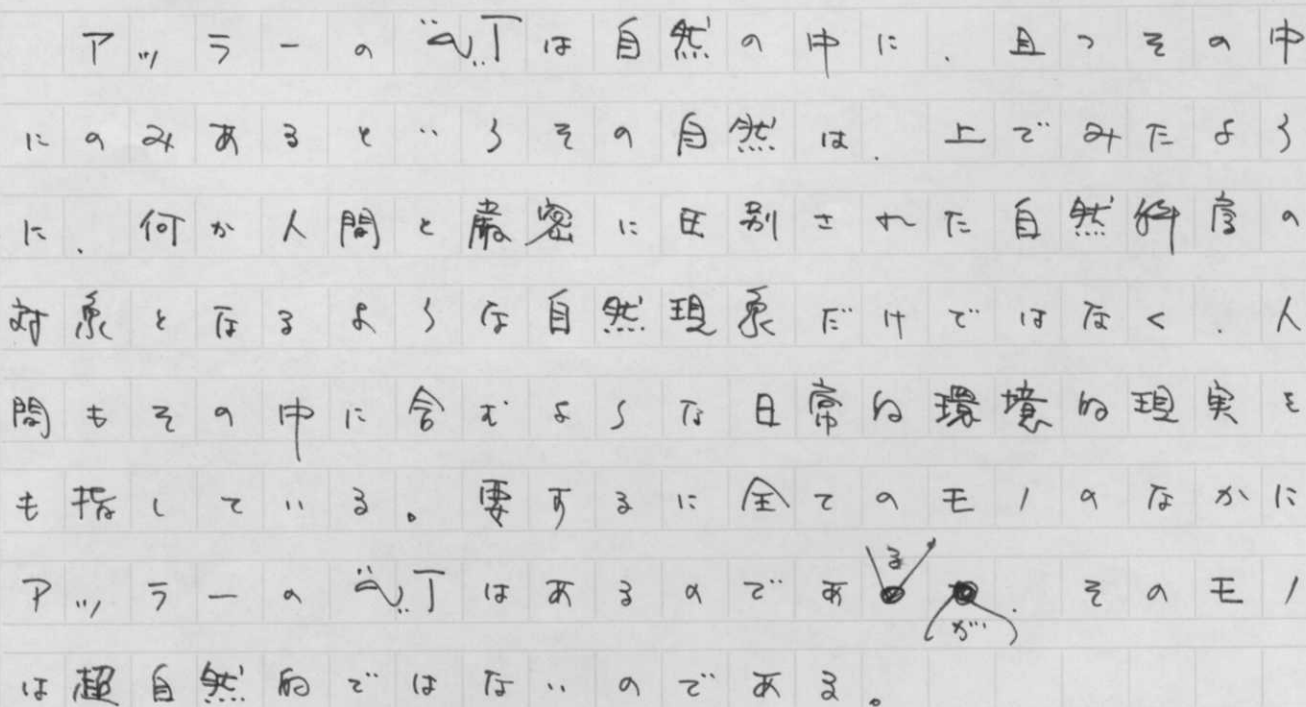 アッラーのآيةは自然の中に、且つその中
にのみあるというその自然は、上でみたよう
に、何か人間と厳密に区別された自然科学の
対象となるような自然現象だけではなく、人
間もその中に含むような日常的環境的現実を
も指している。要するに全てのモノのなかに
アッラーのآيةはあるのであるが、そのモノ
は超自然的ではないのである。